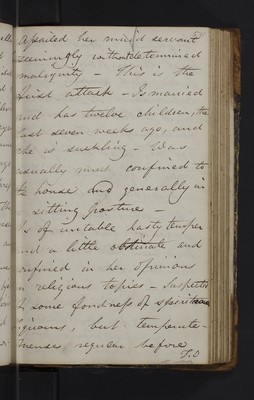 assailed her maid servant
seemingly with determined
malignity - This is the
first attack - Is married
and has twelve children, the
last seven weeks ago, and
she is suckling - Was
usually much confined to
the house and generally in
a sitting posture -
Is of irritable hasty temper
and a little obstinate and
confined in her opinions
on religious topics - Suspected
of some fondness of spirituous
liquors, but temperate -
Menses regular before
T.O